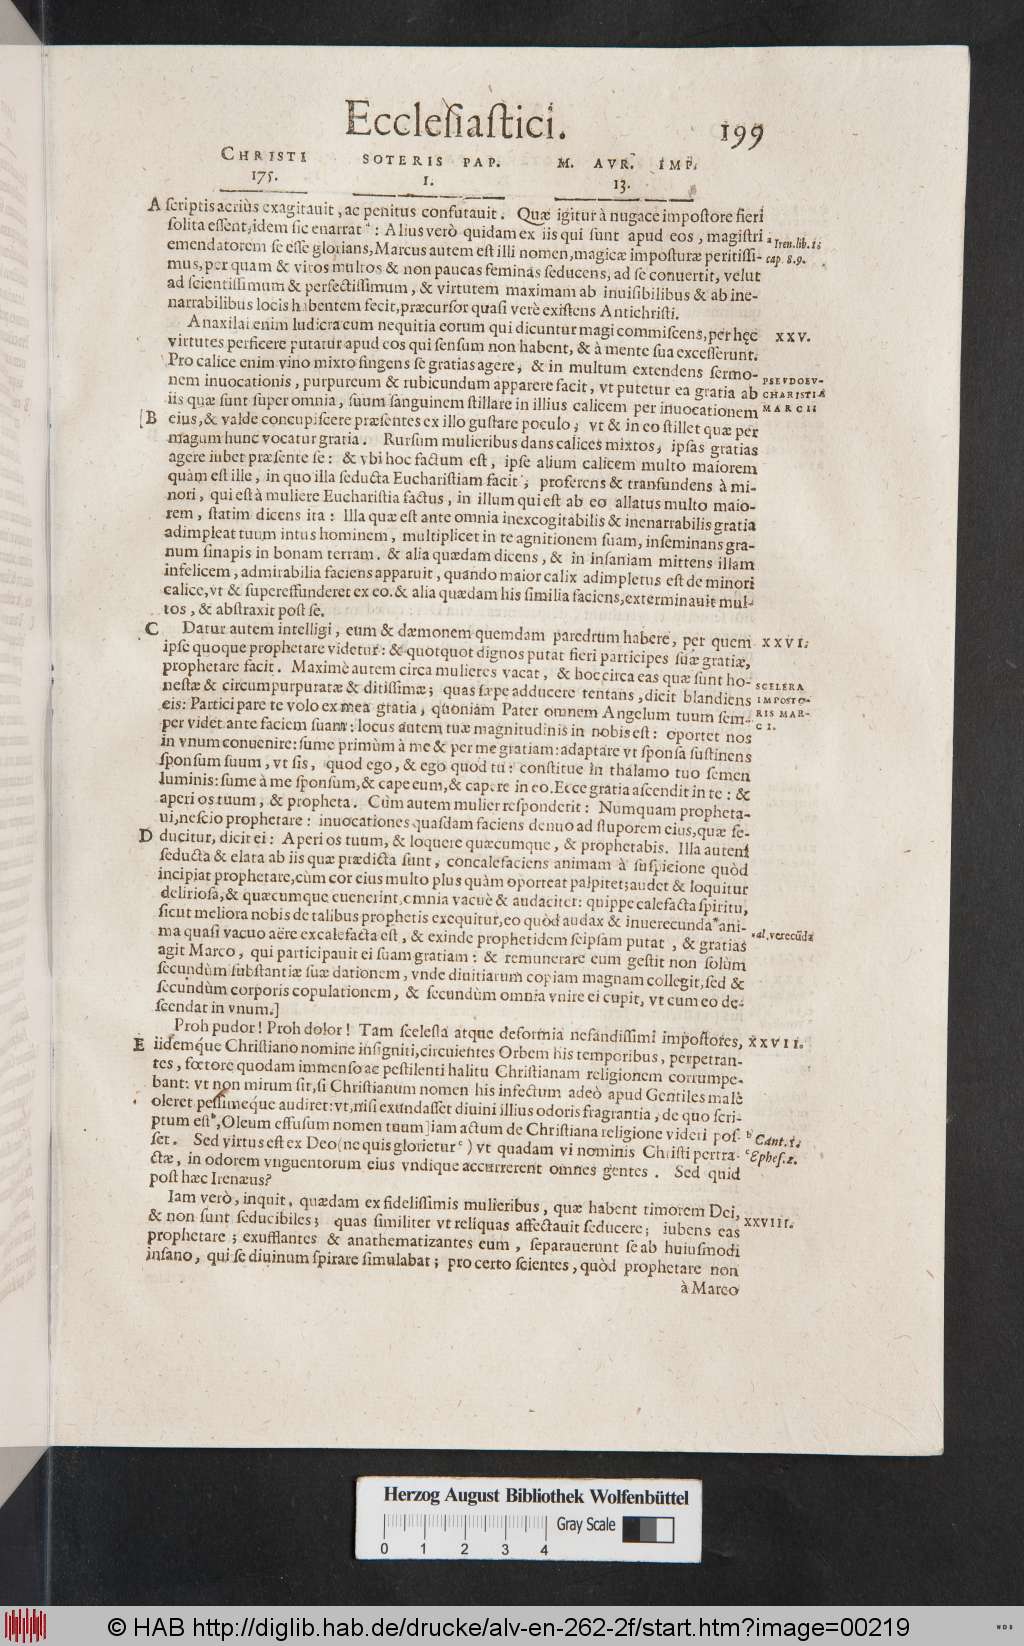 Ecclesiastici. 199
CHRISTI SOTERIS PAP. M. AVR. IMP.
175. I. 13.
A scriptis acriùs exagitauit, ac penitus confutauit. Quæ igitur à nugace impostore fieri
solita essent, idem sic enarrat ª: Alius verò quidam ex iis qui sunt apud eos, magistri
a Iren. lib. 1.
emendatorem se esse glorians, Marcus autem est illi nomen, magicæ imposturæ peritissi-
cap. 8. 9.
mus, per quam & viros multos & non paucas feminas seducens, ad se conuertit, velut
ad scientissimum & perfectissimum, & virtutem maximam ab inuisibilibus & ab ine-
narrabilibus locis habentem fecit, præcursor quasi verè existens Antichristi.
Anaxilai enim ludicra cum nequitia eorum qui dicuntur magi commiscens, per hęc
XXV.
virtutes perficere putatur apud eos qui sensum non habent, & à mente sua excesserunt.
Pro calice enim vino mixto fingens se gratias agere, & in multum extendens sermo-
nem inuocationis, purpureum & rubicundum apparere facit, vt putetur ea gratia ab
PSEVDOEV-
iis quæ sunt super omnia, suum sanguinem stillare in illius calicem per inuocationem
CHARISTIA
[B eius, & valde concupiscere præsentes ex illo gustare poculo; vt & in eo stillet quæ per
MARCII
magum hunc vocatur gratia. Rursum mulieribus dans calices mixtos, ipsas gratias
agere iubet præsente se: & vbi hoc factum est, ipse alium calicem multo maiorem
quàm est ille, in quo illa seducta Eucharistiam facit, proferens & transfundens à mi-
nori, qui est à muliere Eucharistia factus, in illum qui est ab eo allatus multo maio-
rem, statim dicens ita: Illa quæ est ante omnia inexcogitabilis & inenarrabilis gratia
adimpleat tuum intus hominem, multiplicet in te agnitionem suam, inseminans gra-
num sinapis in bonam terram. & alia quædam dicens, & in insaniam mittens illam
infelicem, admirabilia faciens apparuit, quando maior calix adimpletus est de minori
calice, vt & supereffunderet ex eo. & alia quædam his similia faciens, exterminauit mul-
tos, & abstraxit post se.
C Datur autem intelligi, eum & dæmonem quemdam paredrum habere, per quem
XXVI.
ipse quoque prophetare videtur: & quotquot dignos putat fieri participes suæ gratiæ,
prophetare facit. Maximè autem circa mulieres vacat, & hoc circa eas quæ sunt ho-
nestæ & circumpurpuratæ & ditissimæ; quas sæpe adducere tentans, dicit blandiens
SCELERA
eis: Participare te volo ex mea gratia, quoniam Pater omnem Angelum tuum sem-
IMPOSTO-
per videt ante faciem suam: locus autem tuæ magnitudinis in nobis est: oportet nos
RIS MAR-
in vnum conuenire: sume primùm à me & per me gratiam: adaptare vt sponsa sustinens
CI.
sponsum suum, vt sis, quod ego, & ego quod tu: constitue in thalamo tuo semen
luminis: sume à me sponsum, & cape eum, & capere in eo. Ecce gratia ascendit in te: &
aperi os tuum, & propheta. Cùm autem mulier responderit: Numquam propheta-
ui, nescio prophetare: inuocationes quasdam faciens denuo ad stuporem eius, quæ se-
D ducitur, dicit ei: Aperi os tuum, & loquere quæcumque, & prophetabis. Illa autem
seducta & elata ab iis quæ prædicta sunt, concalefaciens animam à suspicione quòd
incipiat prophetare, cùm cor eius multo plus quàm oporteat palpitet; audet & loquitur
deliriosa, & quæcumque euenerint, omnia vacuè & audaciter: quippe calefacta spiritu,
sicut meliora nobis de talibus prophetis exequitur, eo quòd audax & inuerecunda * ani-
ma quasi vacuo aëre excalefacta est, & exinde prophetidem seipsam putat, & gratias
*al. verecūda
agit Marco, qui participauit ei suam gratiam: & remunerare eum gestit non solùm
secundùm substantiæ suæ dationem, vnde diuitiarum copiam magnam collegit, sed &
secundùm corporis copulationem, & secundùm omnia vnire ei cupit, vt cum eo de-
scendat in vnum.]
Proh pudor! Proh dolor! Tam scelesta atque deformia nefandissimi impostores,
XXVII.
E iidemque Christiano nomine insigniti, circuientes Orbem his temporibus, perpetran-
tes, fœtore quodam immenso ac pestilenti halitu Christianam religionem corrumpe-
bant: vt non mirum sit, si Christianum nomen his infectum adeò apud Gentiles malè
oleret pessimeque audiret: vt, nisi exundasset diuini illius odoris fragrantia, de quo scri-
ptum est ᵇ, Oleum effusum nomen tuum] iam actum de Christiana religione videri pos-
b Cant. 1.
set. Sed virtus est ex Deo (ne quis glorietur ᶜ) vt quadam vi nominis Christi pertra-
c Ephes. 2.
ctæ, in odorem vnguentorum eius vndique accurrerent omnes gentes. Sed quid
post hæc Irenæus?
Iam verò, inquit, quædam ex fidelissimis mulieribus, quæ habent timorem Dei,
XXVIII.
& non sunt seducibiles; quas similiter vt reliquas affectauit seducere; iubens eas
prophetare; exufflantes & anathematizantes eum, separauerunt se ab huiusmodi
insano, qui se diuinum spirare simulabat; pro certo scientes, quòd prophetare non
à Marco
Herzog August Bibliothek Wolfenbüttel
Gray Scale
0 1 2 3 4
© HAB http://diglib.hab.de/drucke/alv-en-262-2f/start.htm?image=00219